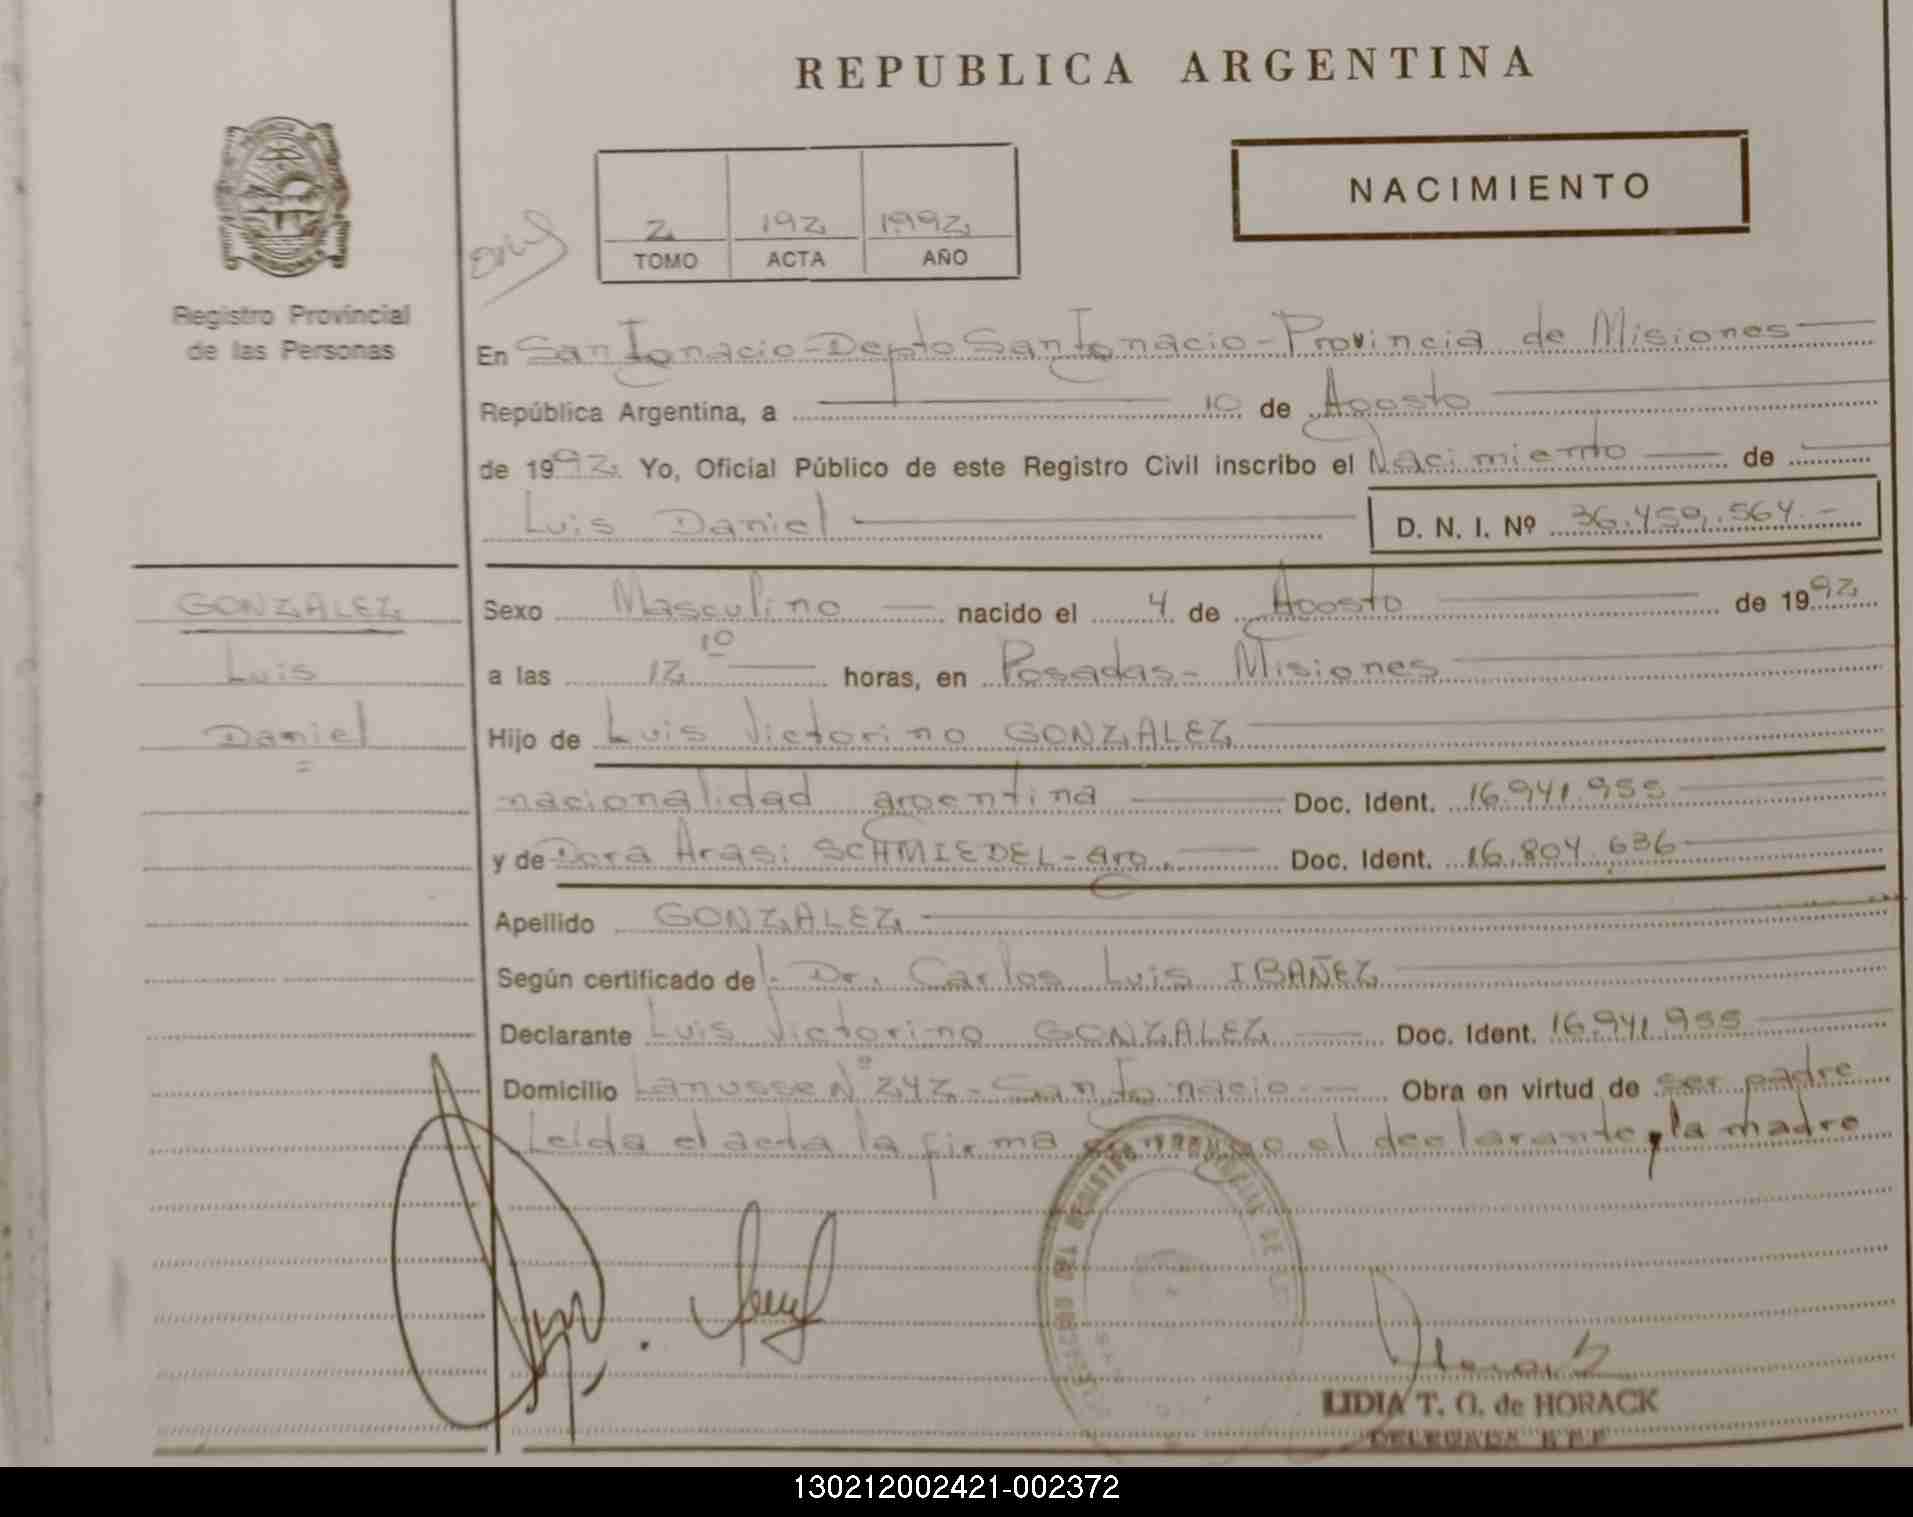 REPUBLICA ARGENTINA
NACIMIENTO
2 192 1992
TOMO ACTA AÑO
Registro Provincial
de las Personas
En San Ignacio - Depto San Ignacio - Provincia de Misiones
República Argentina, a 10 de Agosto
de 1992 Yo, Oficial Público de este Registro Civil inscribo el Nacimiento de
Luis Daniel D. N. I. Nº 36.459.564.-
GONZALEZ
Luis
Daniel
Sexo Masculino nacido el 4 de Agosto de 1992
a las 12 10 horas, en Posadas - Misiones
Hijo de Luis Victorino GONZALEZ
nacionalidad argentina Doc. Ident. 16.941.955
y de Dora Arasi SCHMIEDEL - arg. Doc. Ident. 16.804.636
Apellido GONZALEZ
Según certificado de l. Dr. Carlos Luis IBAÑEZ
Declarante Luis Victorino GONZALEZ Doc. Ident. 16.941.955
Domicilio Lanusse Nº 242 - San Ignacio - Obra en virtud de ser padre
Leída el acta la firma el declarante, la madre
LIDIA T. O. de HORACK
DELEGADA
130212002421-002372